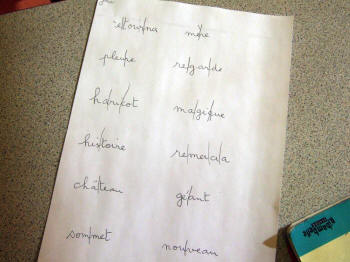 retourna mère
pleure regarda
haricot magique
histoire remercia
château géant
sommet nouveau